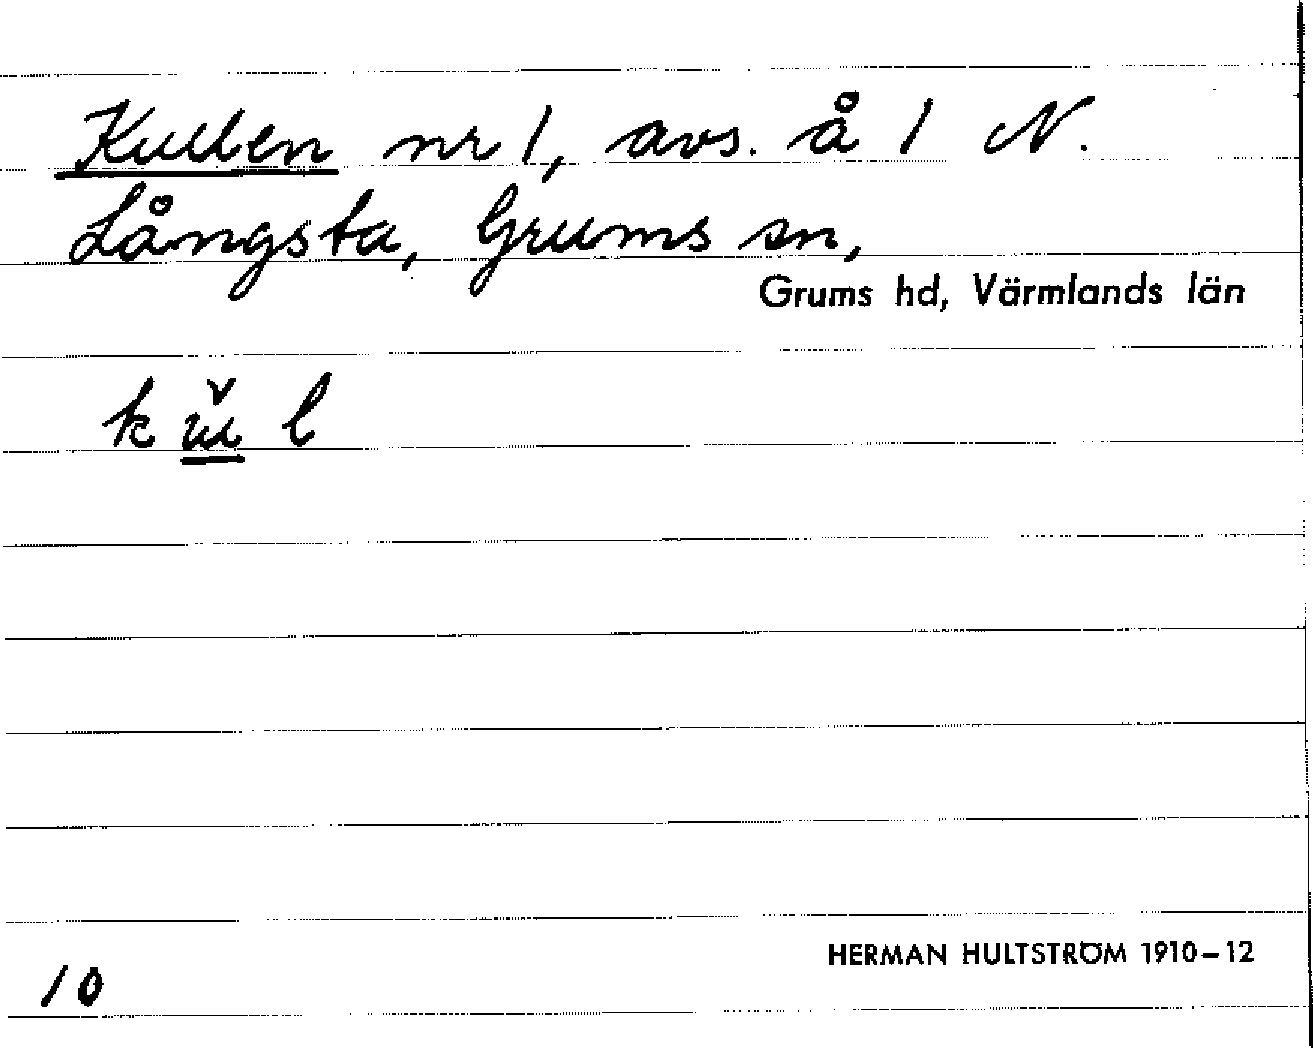 Kullen nr 1, avs. å 1 N.
Långsta, Grums sn,
Grums hd, Värmlands län
k ŭ l
HERMAN HULTSTRÖM 1910–12
10